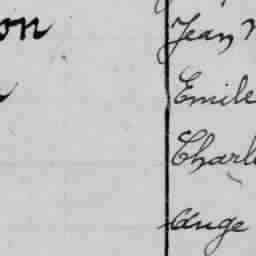 on Jean
Emile
Charl
Ange